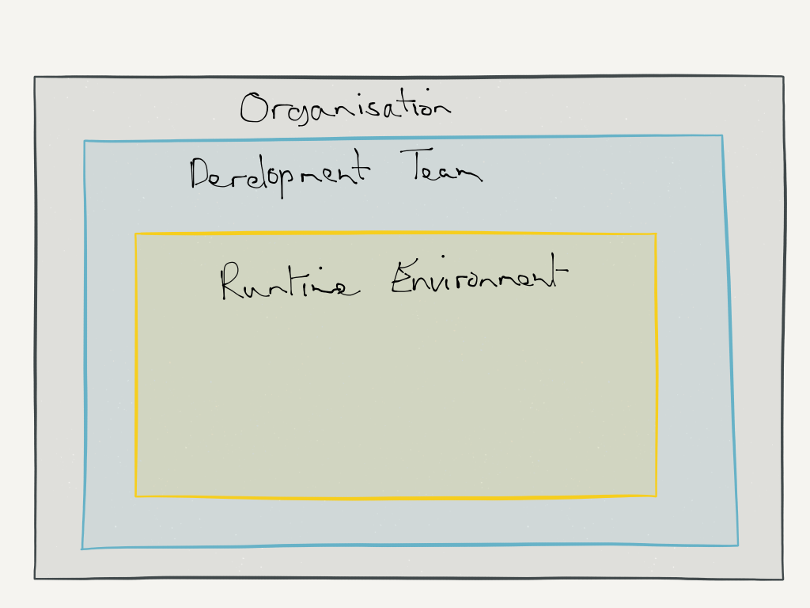 Organisation
Development Team
Runtime Environment